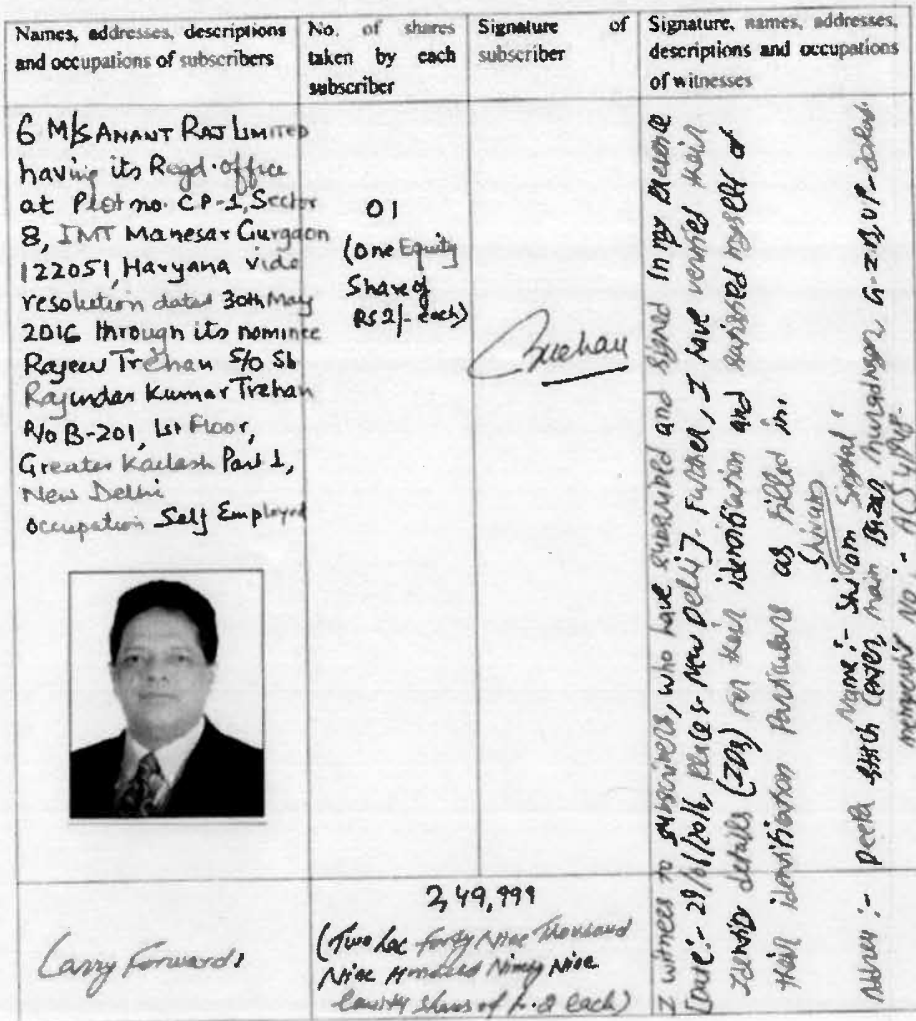 Names, addresses, descriptions
and occupations of subscribers
No. of shares
taken by each
subscriber
Signature of
subscriber
Signature, names, addresses,
descriptions and occupations
of witnesses
6 M/S ANANT RAJ LIMITED
having its Regd. office
at Plot no. CP-1, Sector
8, IMT Manesar Gurgaon
122051, Haryana vide
resolution dated 30th May
2016 through its nominee
Rajeev Trehan S/o Sh
Rajindar Kumar Trehan
R/o B-201, 1st Floor,
Greater Kailash Part 1,
New Delhi
occupation Self Employed
01
(one Equity
Share of
RS 2/- each)
Trehan
I witness to subscribers, who have subscribed and signed in my presence
[Date:- 29/06/2016, Place:- New Delhi]. Further, I have verified their
identity details (IDs) for their identification and satisfied myself of
their identification particulars as filled in.
Shivam
Name:- Shivam Singhal
Address:- Deepa Stitch Center, main Bazar muradnagar, GZB, UP-
No:- ACS
Carry Forward:
2,49,999
(Two Lac forty Nine Thousand
Nine Hundred Ninety Nine
Equity shares of Rs. 2 each)